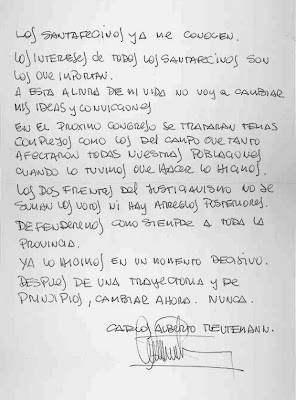 LOS SANTAFECINOS YA ME CONOCEN.
LOS INTERESES DE TODOS LOS SANTAFECINOS SON
LOS QUE IMPORTAN.
A ESTA ALTURA DE MI VIDA NO VOY A CAMBIAR
MIS IDEAS Y CONVICCIONES
EN EL PROXIMO CONGRESO SE TRATARAN TEMAS
COMPLEJOS COMO LOS DEL CAMPO QUE TANTO
AFECTARON TODAS NUESTRAS POBLACIONES
CUANDO LO TUVIMOS QUE HACER LO HICIMOS.
LOS DOS FRENTES DEL JUSTICIALISMO NO SE
SUMAN LOS VOTOS NI HAY ARREGLOS POSTERIORES.
DEFENDEREMOS COMO SIEMPRE A TODA LA
PROVINCIA.
YA LO HICIMOS EN UN MOMENTO DECISIVO.
DESPUES DE UNA TRAYECTORIA Y DE
PRINCIPIOS, CAMBIAR AHORA. NUNCA.
CARLOS ALBERTO REUTEMANN.